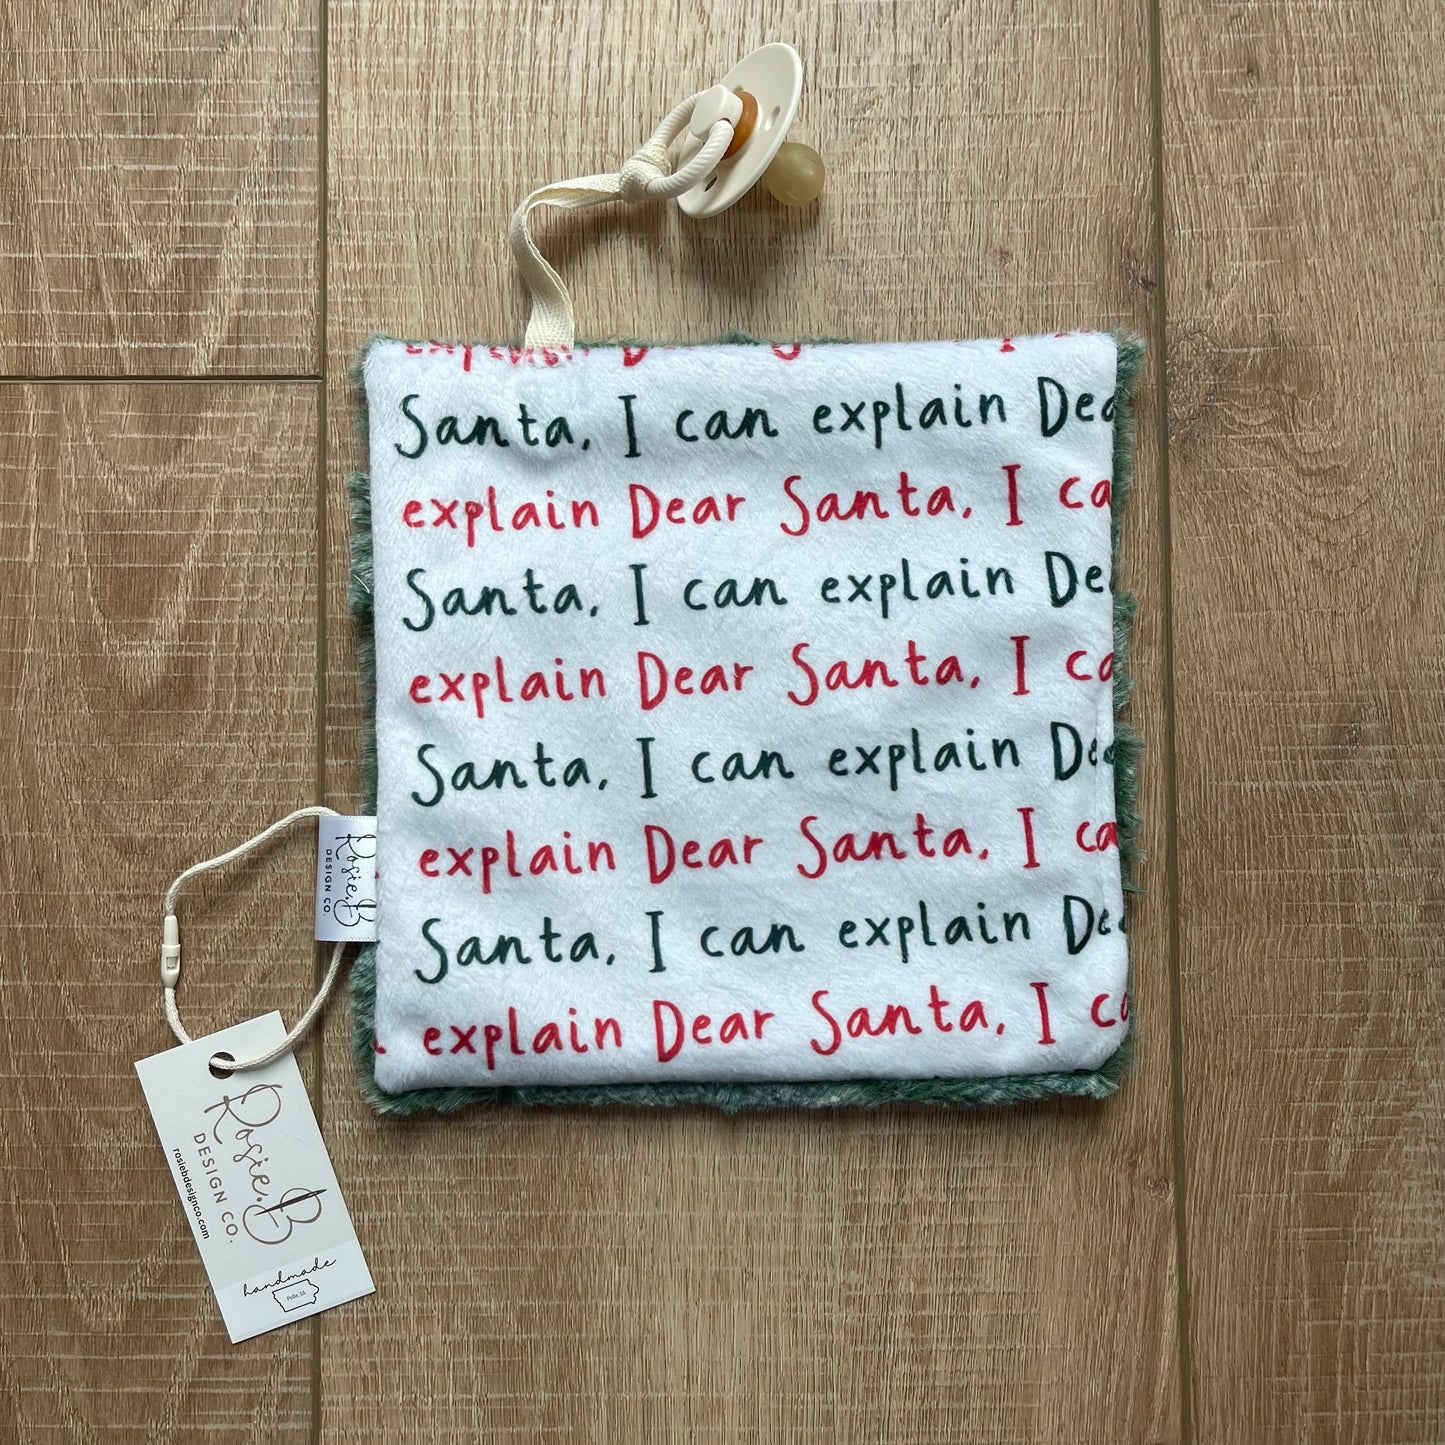 explain Dear
Santa, I can explain Dea
explain Dear Santa, I ca
Santa, I can explain De
explain Dear Santa, I ca
Santa, I can explain De
explain Dear Santa, I ca
Santa, I can explain De
explain Dear Santa, I ca
Rosie.B
DESIGN CO.
Rosie.B
DESIGN CO.
rosiebdesignco.com
handmade
Pella, IA